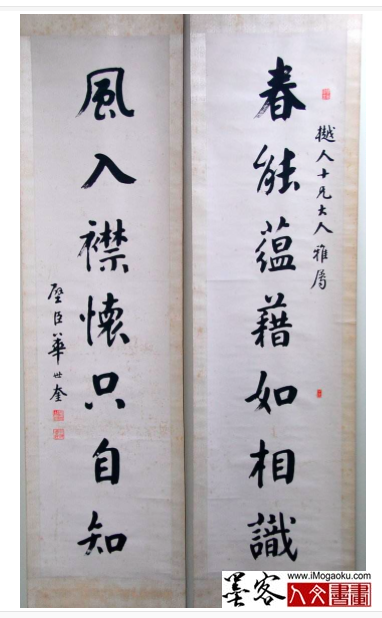 樾人十兄大人雅屬
春能蘊藉如相識
風入襟懷只自知
壁臣華世奎
www.iMogaoku.com
墨客
人文書畫